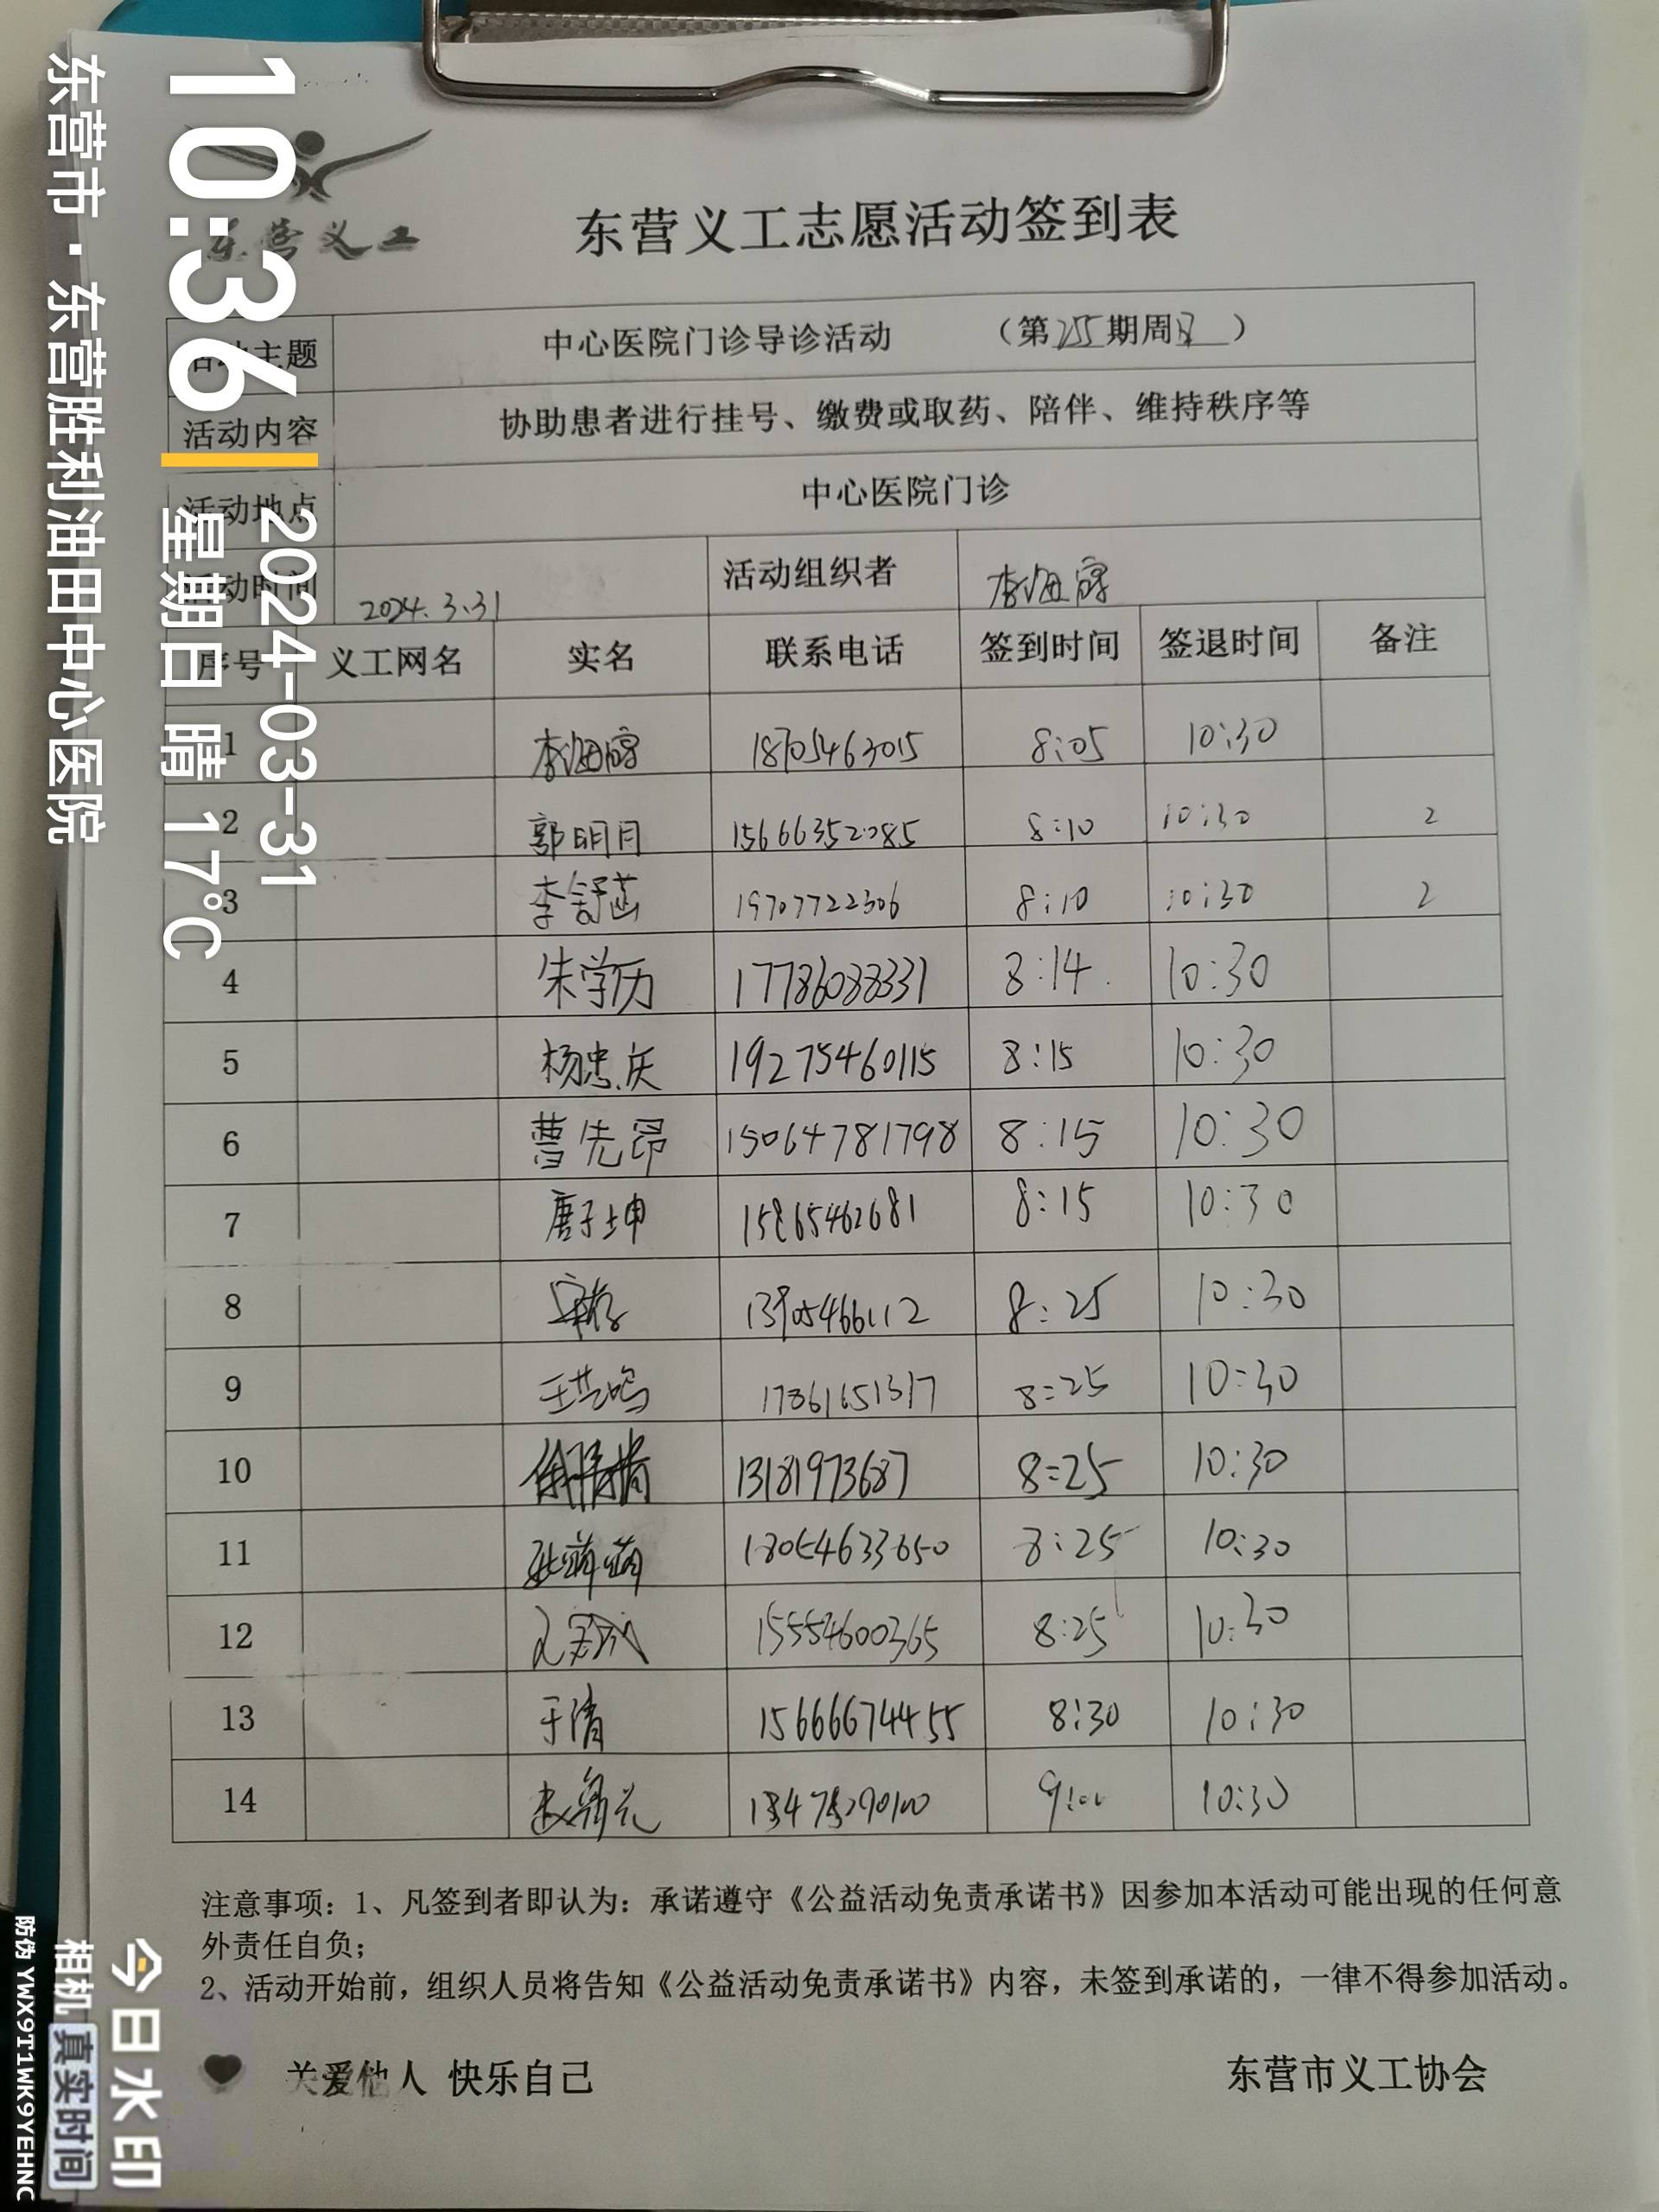 东营义工
东营义工志愿活动签到表
活动主题 中心医院门诊导诊活动 (第255期周日)
活动内容 协助患者进行挂号、缴费或取药、陪伴、维持秩序等
活动地点 中心医院门诊
活动时间 2024.3.31 活动组织者 李海
序号 义工网名 实名 联系电话 签到时间 签退时间 备注
1 李海 18705463015 8:05 10:30
2 郭明月 15666352085 8:10 10:30 2
3 李舒菡 19707722306 8:10 10:30 2
4 朱学历 17786088331 8:14 10:30
5 杨忠庆 19275460115 8:15 10:30
6 曹先昂 15064781798 8:15 10:30
7 唐子坤 15865462681 8:15 10:30
8 13905466112 8:25 10:30
9 17861651317 8:25 10:30
10 13181973687 8:25 10:30
11 18054633650 8:25 10:30
12 15554600365 8:25 10:30
13 于清 15666674455 8:30 10:30
14 9:00 10:30
注意事项：1、凡签到者即认为：承诺遵守《公益活动免责承诺书》因参加本活动可能出现的任何意
外责任自负；
2、活动开始前，组织人员将告知《公益活动免责承诺书》内容，未签到承诺的，一律不得参加活动。
关爱他人 快乐自己
东营市义工协会
10:36
2024-03-31
星期日 晴 17℃
东营市·东营胜利油田中心医院
今日水印
相机 真实时间
防伪 YWX9T1WK9YEHNC